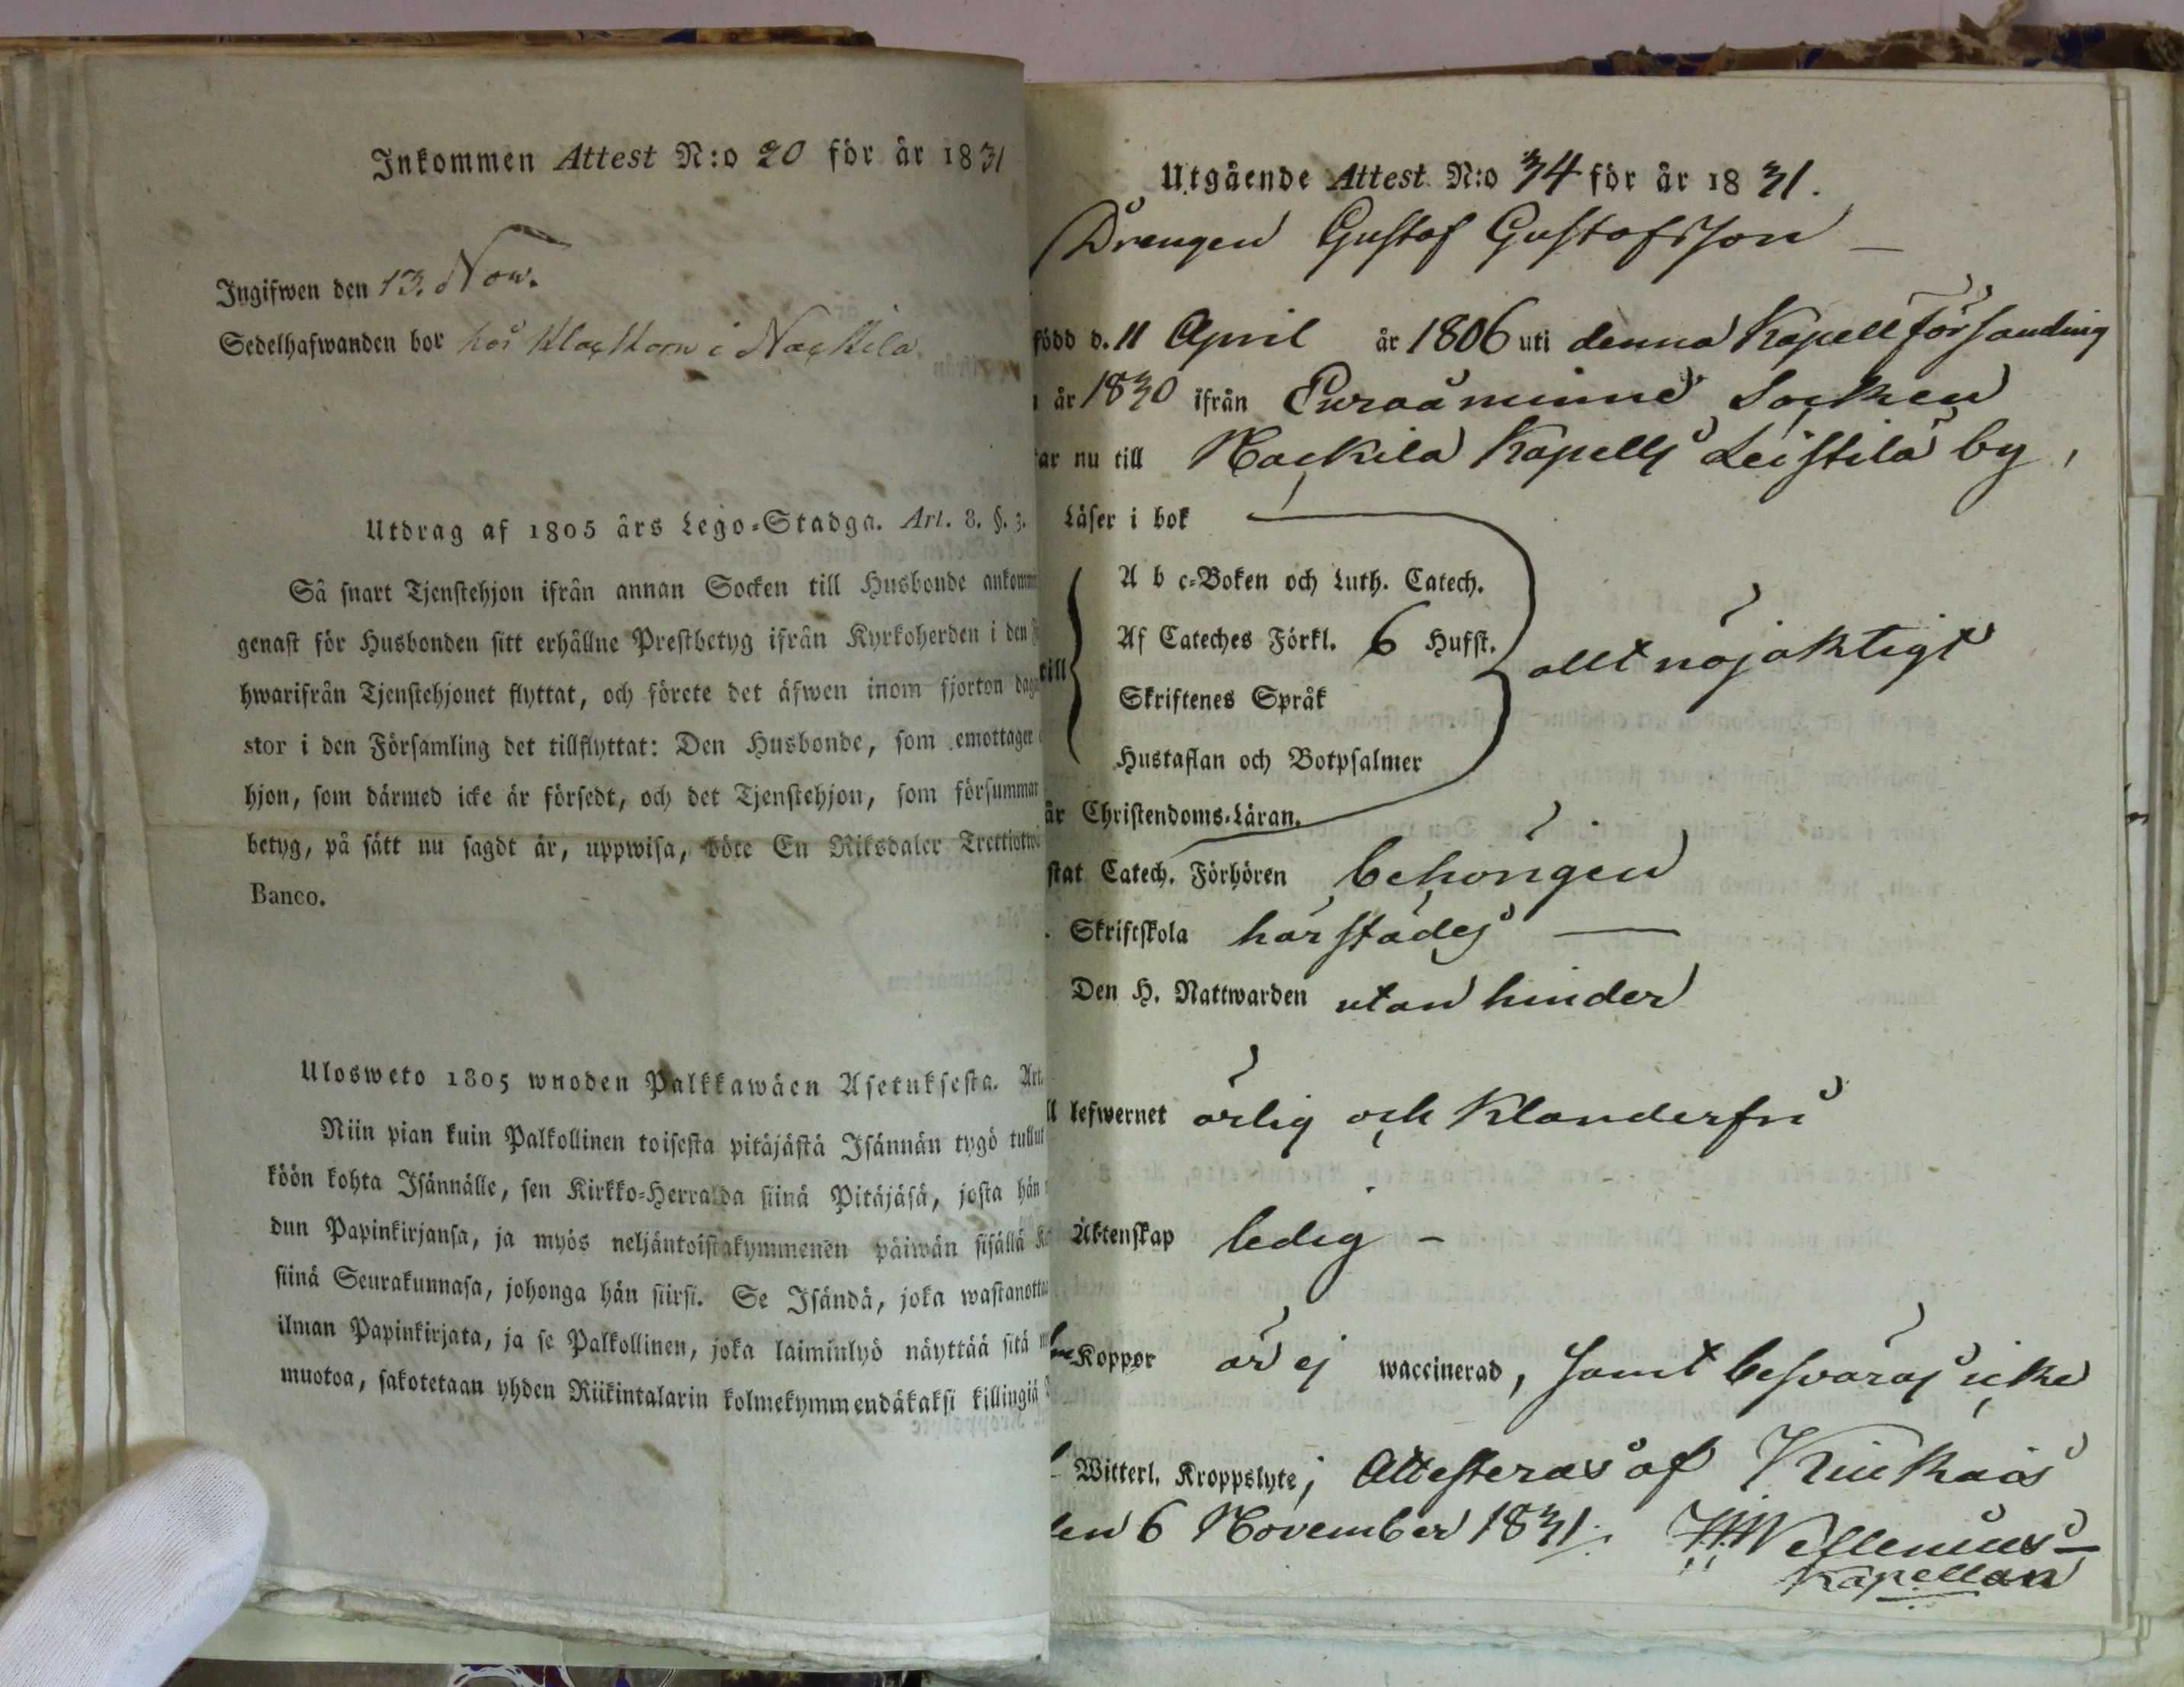 Inkommen Attest N:o 20 för år 1831
Ingifwen den 13. Now.
Sedelhafwanden bor hos Klockarn i Nackila
Utdrag af 1805 års Lego-Stadga. Art. 8. §. 3.
Så snart Tjenstehjon ifrån annan Socken till Husbonde ankomm
genast för Husbonden sitt erhållne Prestbetyg ifrån Kyrkoherden i den
hwarifrån Tjenstehjonet flyttat, och förete det äfwen inom fjorton dag
stor i den Församling det tillflyttat: Den Husbonde, som emottager
hjon, som därmed icke är försedt, och det Tjenstehjon, som försummar
betyg, på sätt nu sagdt är, uppwisa, böte En Riksdaler Trettiotwå
Banco.
Ulosweto 1805 wuoden Palkkawäen Asetuksesta. Art.
Niin pian kuin Palkollinen toisesta pitäjästä Isännän tygö tullut
köön kohta Isännälle, sen Kirkko-Herralda siinä Pitäjäsä, josta hän
dun Papinkirjansa, ja myös neljäntoistakymmenen päiwän sisällä
siinä Seurakunnasa, johonga hän siirsi. Se Isändä, joka wastanotta
ilman Papinkirjata, ja se Palkollinen, joka laiminlyö näyttää sitä
muotoa, sakotetaan yhden Riikintalarin kolmekymmendäkaksi killingiä
Utgående Attest N:o 34 för år 1831.
Drengen Gustaf Gustafsson —
född d. 11 April år 1806 uti denna Kapell församling
år 1830 ifrån Euraåminne Socken
ar nu till Nackila Kapells Leistilä by,
Läser i bok
A b c-Boken och Luth. Catech.
Af Cateches Förkl. 6 Hufst.
till
allt nöjaktigt
Skriftenes Språk
Hustaflan och Botpsalmer
är Christendoms-Läran.
stat Catech. Förhören behörigen
Skriftskola härstädes —
Den H. Nattwarden utan hinder
ll lefwernet ärlig och klanderfri
Äktenskap ledig -
Koppor är ej waccinerad, samt besväras icke
Witterl. Kroppslyte; Attesteras af Kiukais
den 6 November 1831. Wellenius —
Kapellan